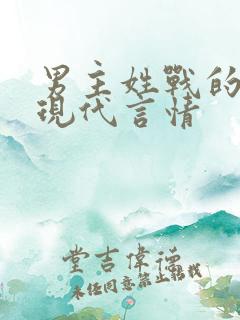 男主姓戰的
現代言情
堂吉偉德
未经同意禁止转载